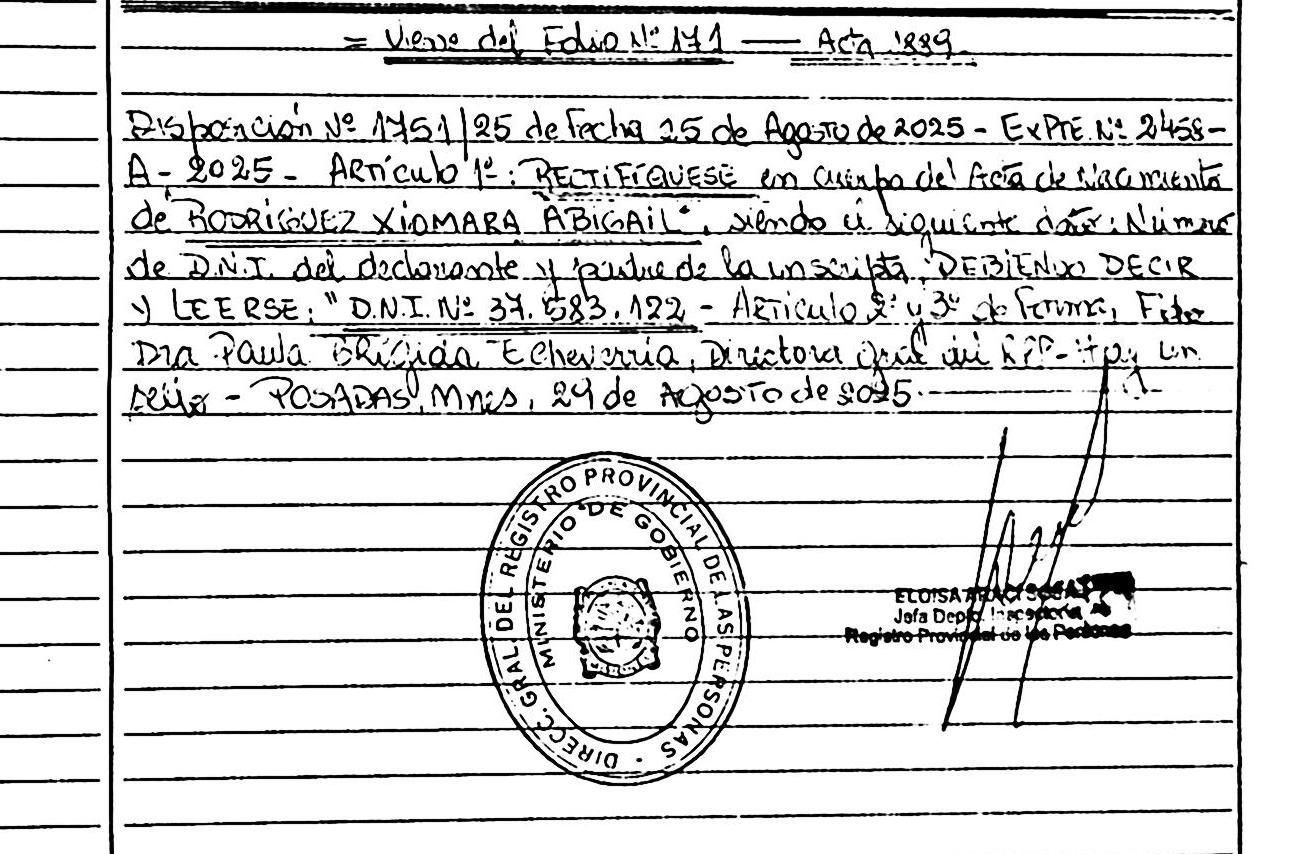 = Viene del Folio Nº 171 — Acta 1889.
Disposición Nº 1751/25 de Fecha 25 de Agosto de 2025 - ExPTE. Nº 2458-
A - 2025 - Artículo 1º: RECTIFÍQUESE en cuerpo del Acta de Nacimiento
de "RODRÍGUEZ XIOMARA ABIGAIL", siendo el siguiente dato: Número
de D.N.I. del declarante y padre de la inscripta, DEBIENDO DECIR
y LEERSE: "D.N.I. Nº 37.583.122 - Artículo 2º y 3º de Forma, Fdo
Dra Paula BRÍGIDA Echeverría, Directora Gral del RPP - Hay un
sello - POSADAS, Mnes, 29 de Agosto de 2025.
DIRECC. GRAL. DEL REGISTRO PROVINCIAL DE LAS PERSONAS
MINISTERIO DE GOBIERNO
ELOISA
Jefa Depto.
Registro Provincial de las Personas